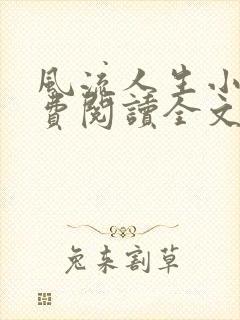 風流人生小
費閱讀全文
兔來割草